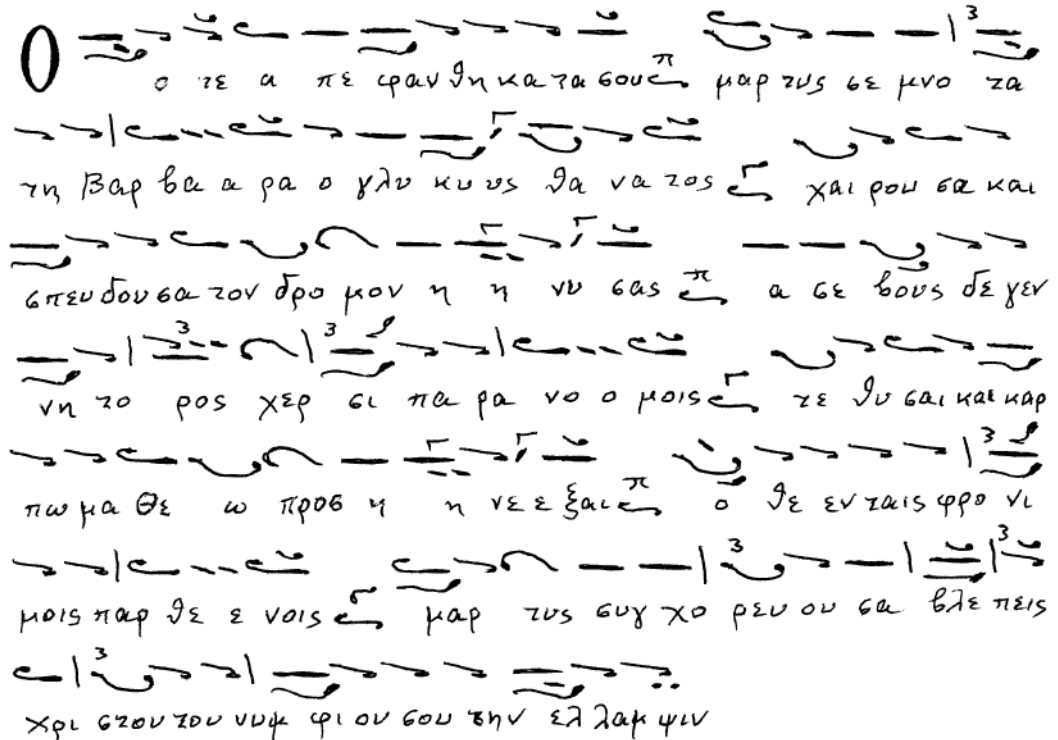 Ο ο τε α πε φαν θη κα τα σους π μαρ τυς σε μνο τα
τη Βαρ βα α ρα ο γλυ κυ υς θα να τος Γ χαι ρου σα και
σπευ δου σα τον δρο μον η η νυ σας π α σε βους δε γεν
νη το ρος χερ σι πα ρα νο ο μοις Γ τε θυ σαι και καρ
πω μα Θε ω προσ η η νε ε ξαι π ο θε εν ταις φρο νι
μοις παρ θε ε νοις μαρ τυς συγ χο ρευ ου σα βλε πεις
χρι στου του νυμ φι ου σου την ελ λαμ ψιν